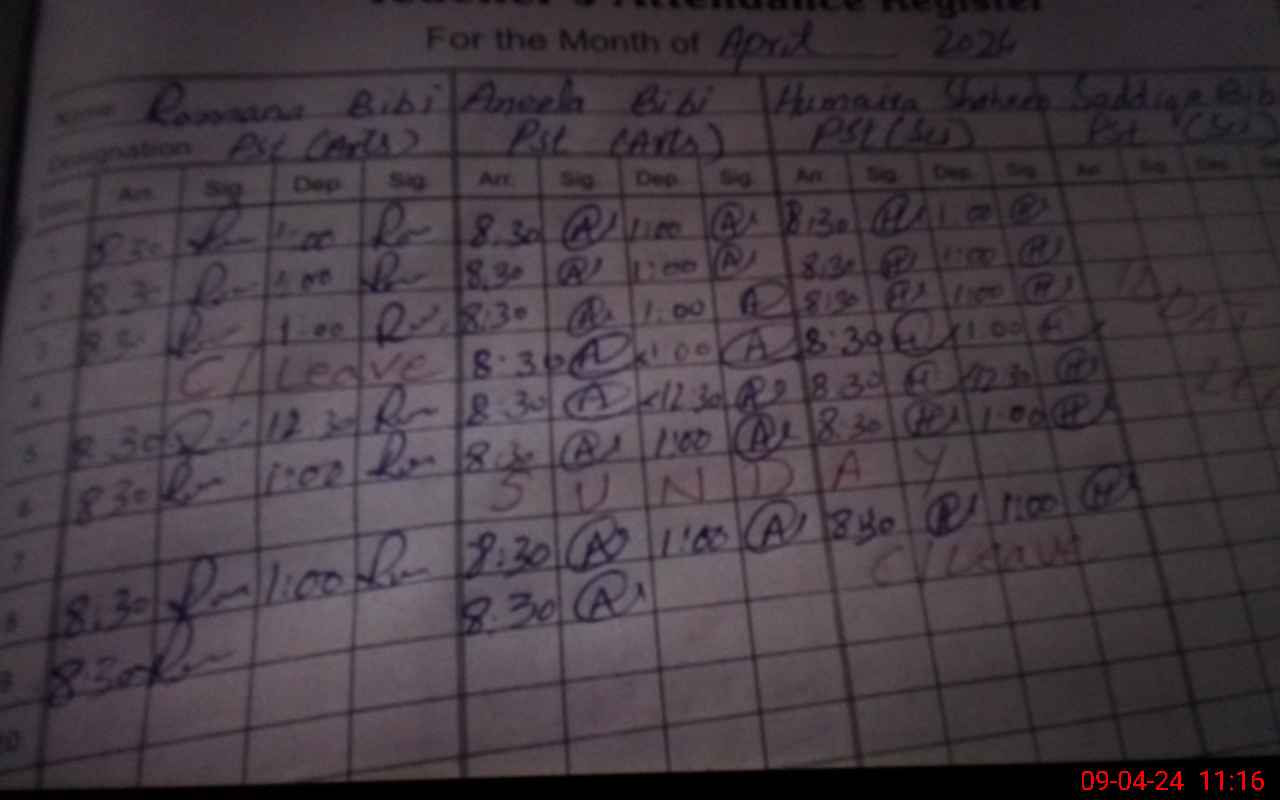 Teacher's Attendance Register
For the Month of April 2024
Name Romana Bibi Aneela Bibi Humaira Shaheen Saddiqa Bibi
Designation Pst (Arts) Pst (Arts) PSt (Sci) Pst (Sci)
Arr. Sig. Dep. Sig. Arr. Sig. Dep. Sig. Arr. Sig. Dep. Sig. Arr. Sig. Dep. Sig.
1 8:30 1:00 8:30 A 1:00 A 8:30 H 1:00 H
2 8:30 1:00 8:30 A 1:00 A 8:30 H 1:00 H
3 8:30 1:00 8:30 A 1:00 A 8:30 H 1:00 H
4 C/Leave 8:30 A 1:00 A 8:30 H 1:00 H
5 8:30 12:30 8:30 A 12:30 A 8:30 H 12:30 H
6 8:30 1:00 8:30 A 1:00 A 8:30 H 1:00 H
7 SUNDAY
8 8:30 1:00 8:30 A 1:00 A 8:30 H 1:00 H
9 8:30 8:30 A C/Leave
10
09-04-24 11:16